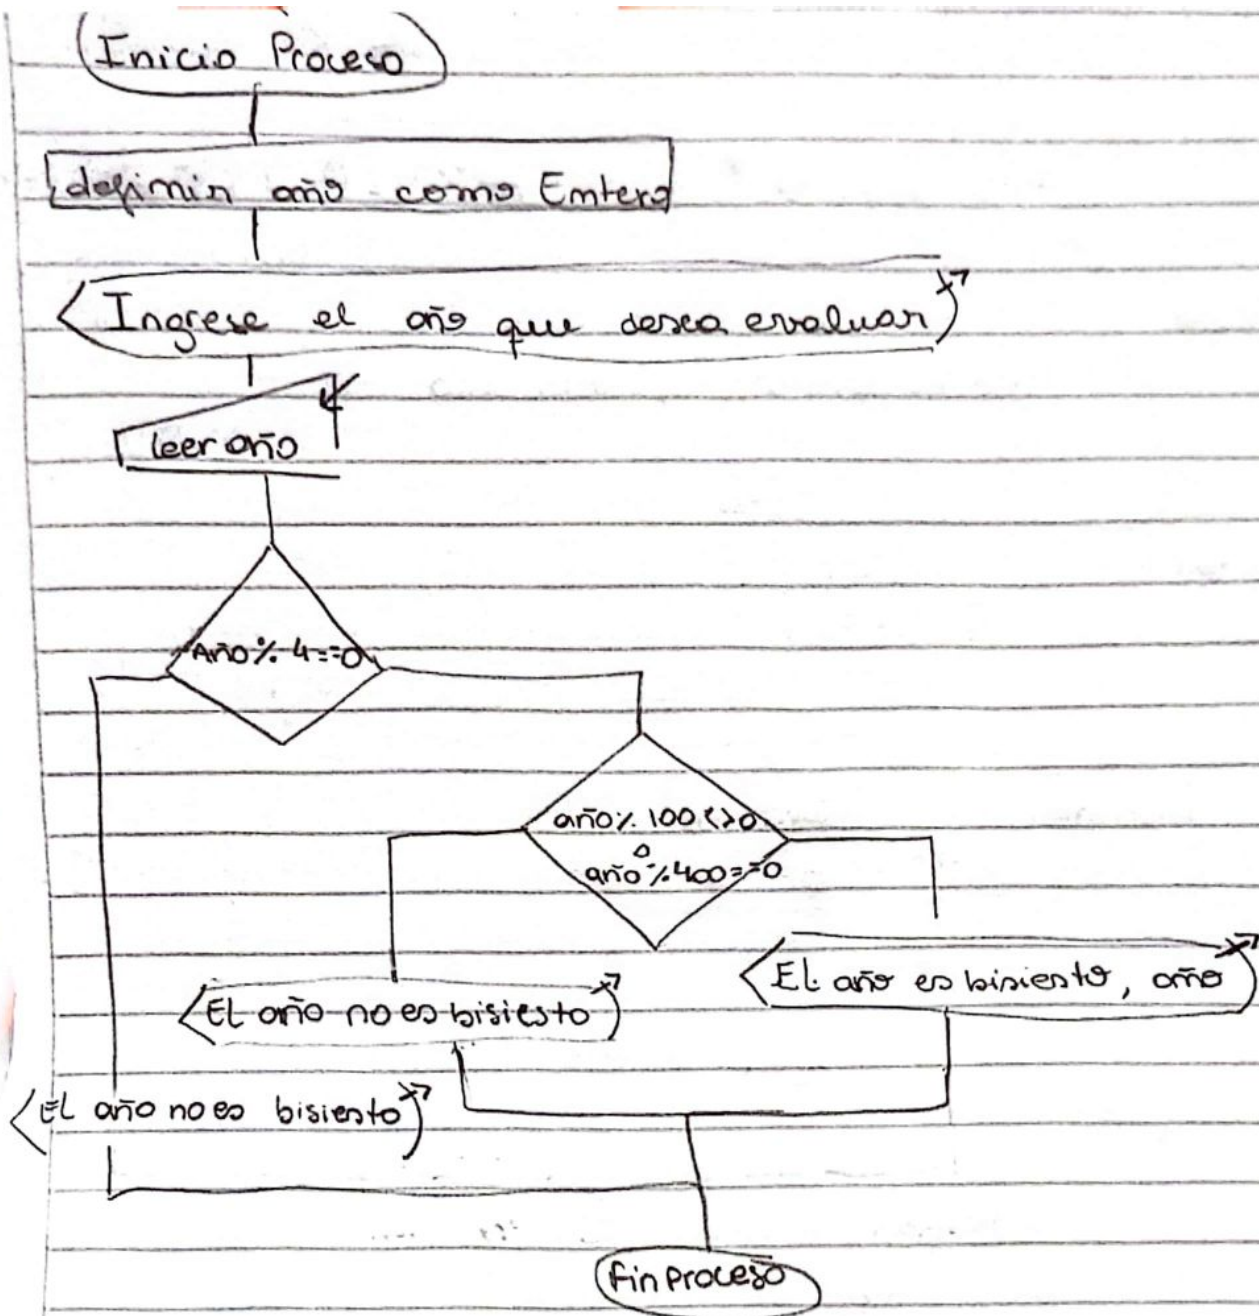 Inicio Proceso
definir año como Entero
Ingrese el año que desea evaluar
leer año
Año % 4 == 0
año % 100 <> 0
o
año % 400 == 0
El año es bisiesto, año
El año no es bisiesto
El año no es bisiesto
fin proceso